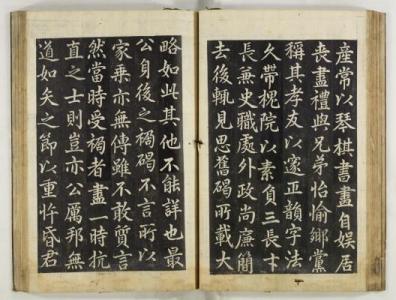 產常以琴棋書畫自娛居
喪盡禮與兄弟怡愉鄉黨
稱其孝友以邃正韻字法
久帶槐院以素負三長才
長兼史職處外政尚廉簡
去後輒見思舊碣所載大
略如此其他不能詳也最
公身後之禍碣不言所以
家乘亦無傳雖不敢質言
然當時受禍者盡一時抗
直之士則豈亦公厲邦無
道如矢之節以重忤昏君